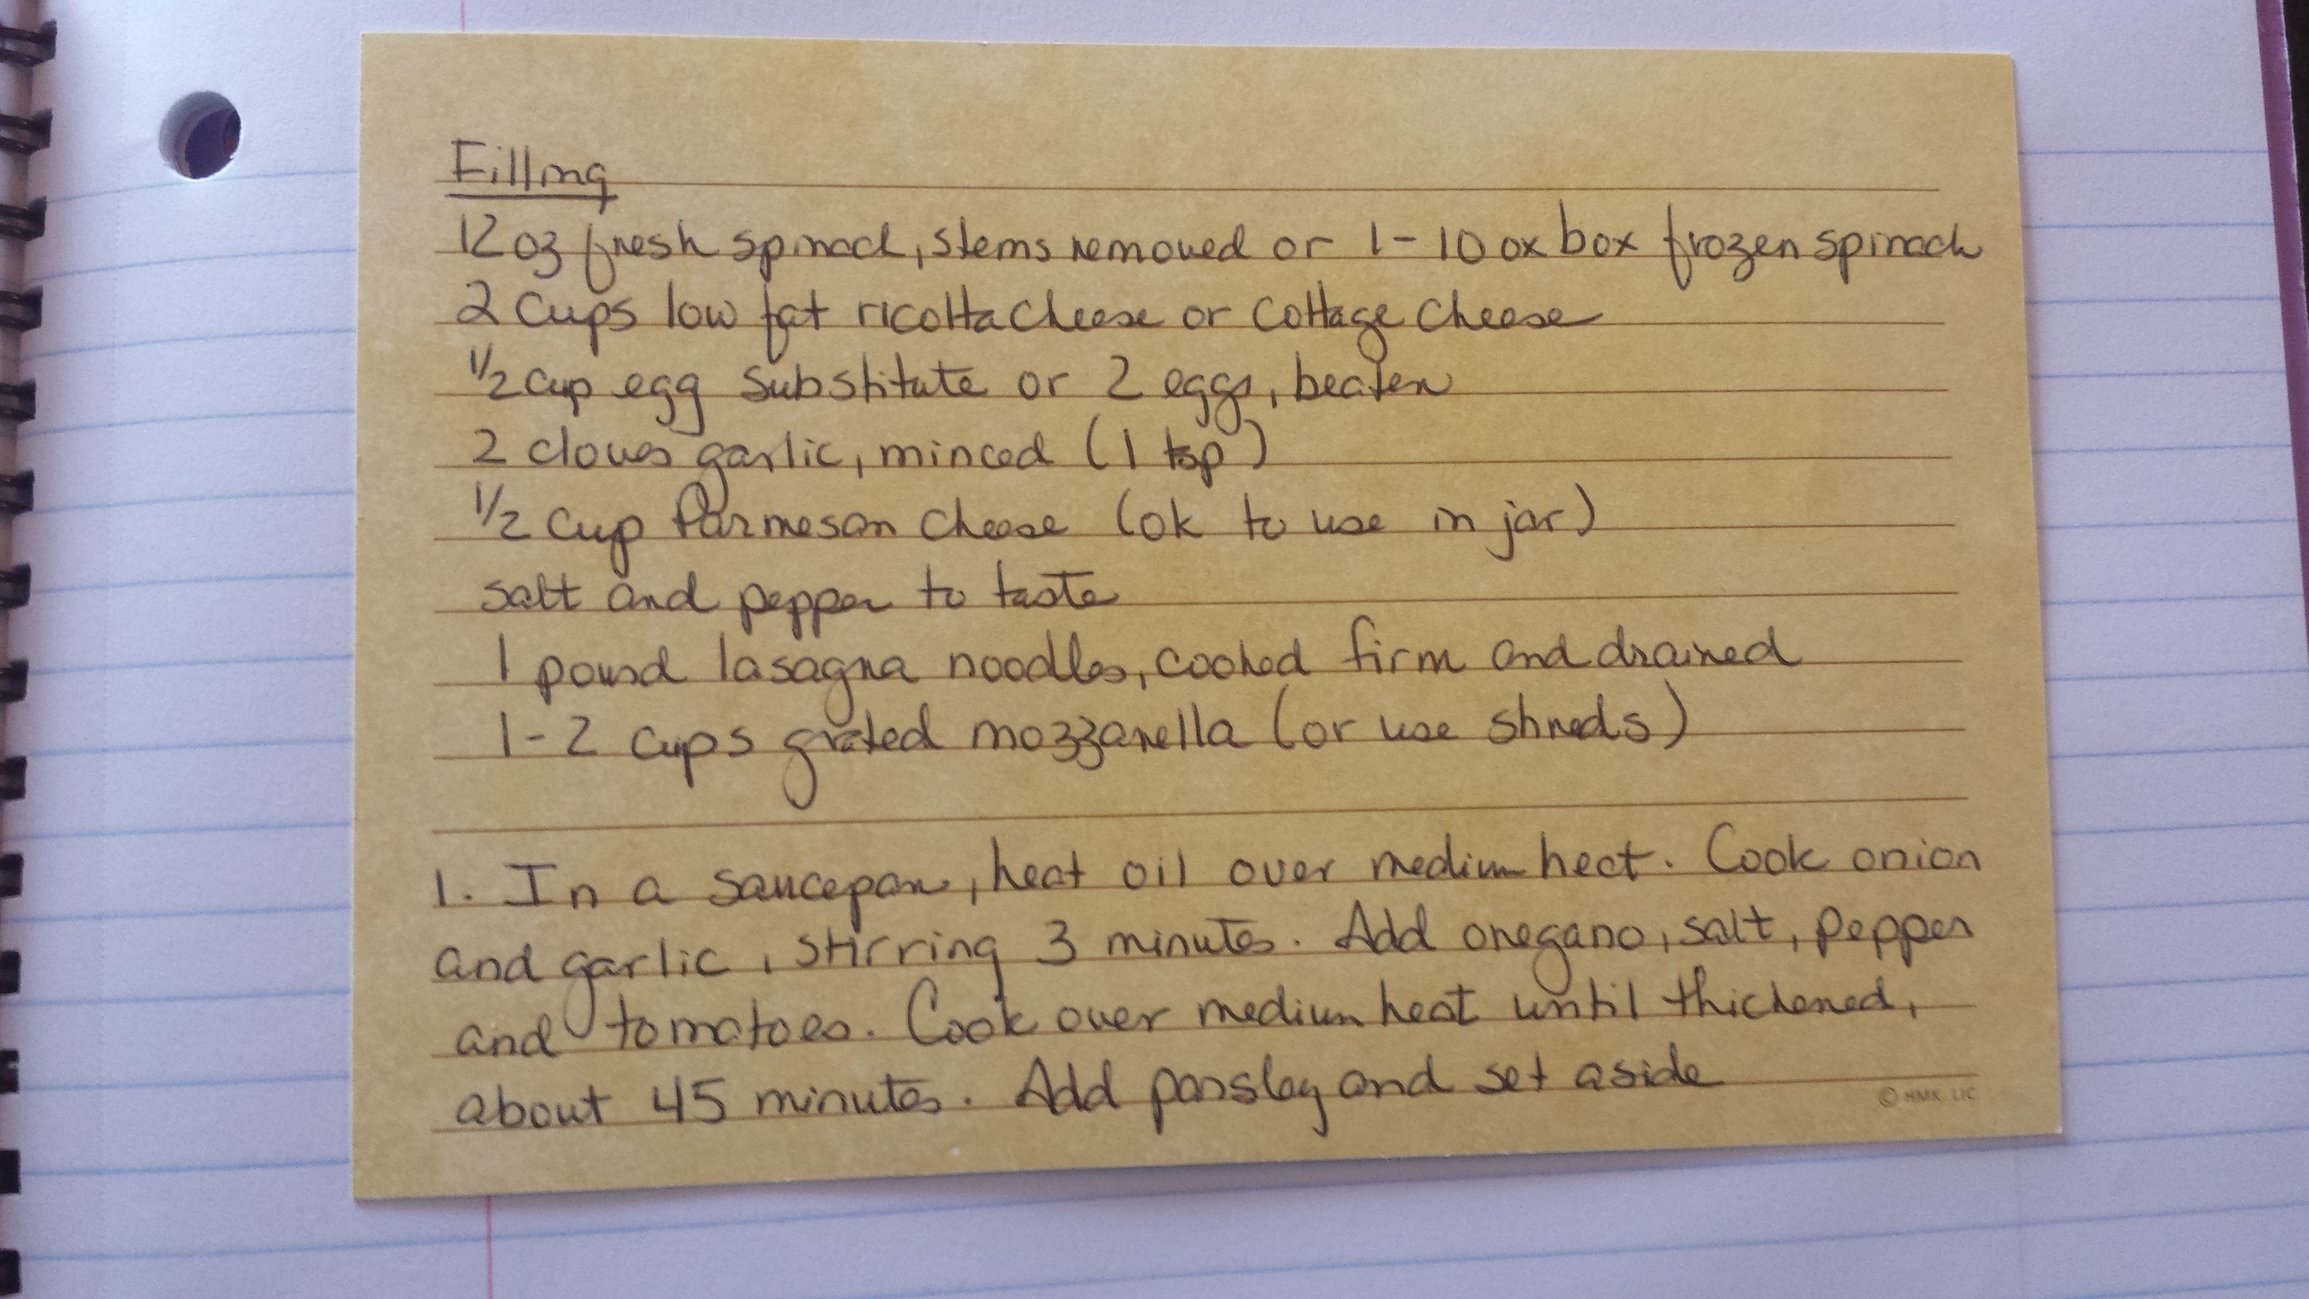 Filling
12 oz fresh spinach, stems removed or 1-10 ox box frozen spinach
2 cups low fat ricotta cheese or cottage cheese
1/2 cup egg substitute or 2 eggs, beaten
2 cloves garlic, minced (1 tsp)
1/2 cup Parmesan cheese (ok to use in jar)
salt and pepper to taste
1 pound lasagna noodles, cooked firm and drained
1-2 cups grated mozzarella (or use shreds)
1. In a saucepan, heat oil over medium heat. Cook onion
and garlic, stirring 3 minutes. Add oregano, salt, pepper
and tomatoes. Cook over medium heat until thickened,
about 45 minutes. Add parsley and set aside
© HMK. LIC.